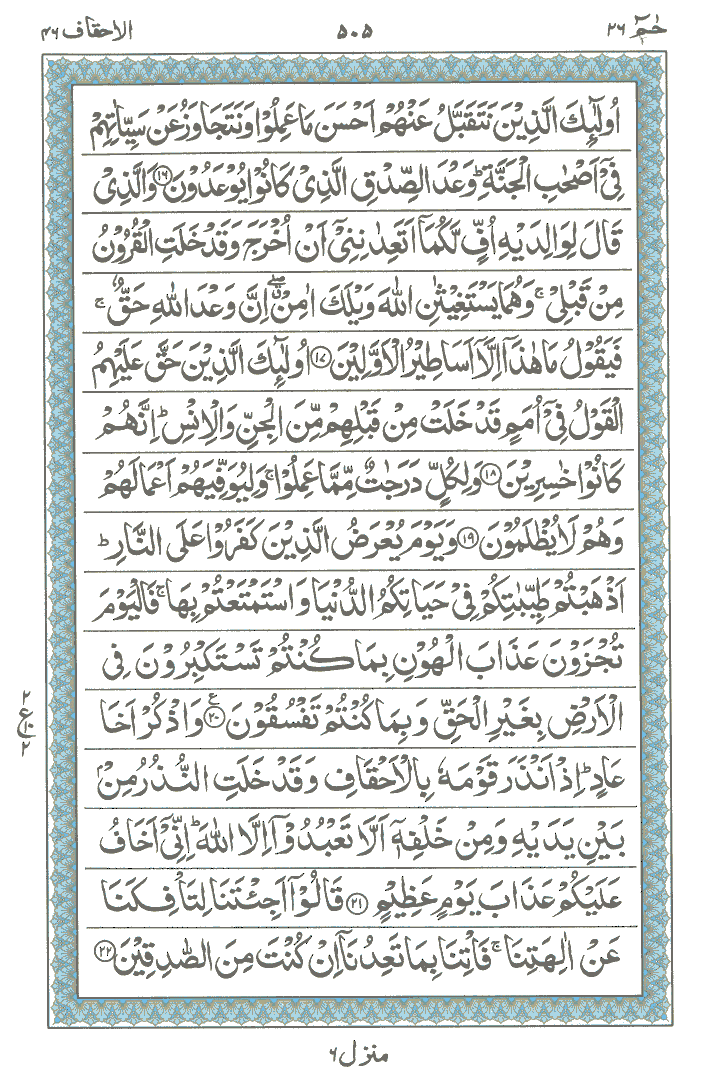 حٰمٓ ٢٦ ٥٠٥ الاحقاف ٤٦
اُولٰٓئِكَ الَّذِيْنَ نَتَقَبَّلُ عَنْهُمْ اَحْسَنَ مَا عَمِلُوْا وَنَتَجَاوَزُ عَنْ سَيِّاٰتِهِمْ
فِيْٓ اَصْحٰبِ الْجَنَّةِ ؕ وَعْدَ الصِّدْقِ الَّذِيْ كَانُوْا يُوْعَدُوْنَ ﴿١٦﴾ وَالَّذِيْ
قَالَ لِوَالِدَيْهِ اُفٍّ لَّكُمَآ اَتَعِدٰنِنِيْٓ اَنْ اُخْرَجَ وَقَدْ خَلَتِ الْقُرُوْنُ
مِنْ قَبْلِيْ ۚ وَهُمَا يَسْتَغِيْثٰنِ اللّٰهَ وَيْلَكَ اٰمِنْ ۖ اِنَّ وَعْدَ اللّٰهِ حَقٌّ ۚ
فَيَقُوْلُ مَا هٰذَآ اِلَّآ اَسَاطِيْرُ الْاَوَّلِيْنَ ﴿١٧﴾ اُولٰٓئِكَ الَّذِيْنَ حَقَّ عَلَيْهِمُ
الْقَوْلُ فِيْٓ اُمَمٍ قَدْ خَلَتْ مِنْ قَبْلِهِمْ مِّنَ الْجِنِّ وَالْاِنْسِ ؕ اِنَّهُمْ
كَانُوْا خٰسِرِيْنَ ﴿١٨﴾ وَلِكُلٍّ دَرَجٰتٌ مِّمَّا عَمِلُوْا ۚ وَلِيُوَفِّيَهُمْ اَعْمَالَهُمْ
وَهُمْ لَا يُظْلَمُوْنَ ﴿١٩﴾ وَيَوْمَ يُعْرَضُ الَّذِيْنَ كَفَرُوْا عَلَى النَّارِ ؕ
اَذْهَبْتُمْ طَيِّبٰتِكُمْ فِيْ حَيَاتِكُمُ الدُّنْيَا وَاسْتَمْتَعْتُمْ بِهَا ۚ فَالْيَوْمَ
تُجْزَوْنَ عَذَابَ الْهُوْنِ بِمَا كُنْتُمْ تَسْتَكْبِرُوْنَ فِي
الْاَرْضِ بِغَيْرِ الْحَقِّ وَبِمَا كُنْتُمْ تَفْسُقُوْنَ ﴿٢٠﴾ ع وَاذْكُرْ اَخَا
٢ ع ٢
عَادٍ ؕ اِذْ اَنْذَرَ قَوْمَهٗ بِالْاَحْقَافِ وَقَدْ خَلَتِ النُّذُرُ مِنْۢ
بَيْنِ يَدَيْهِ وَمِنْ خَلْفِهٖٓ اَلَّا تَعْبُدُوْٓا اِلَّا اللّٰهَ ؕ اِنِّيْٓ اَخَافُ
عَلَيْكُمْ عَذَابَ يَوْمٍ عَظِيْمٍ ﴿٢١﴾ قَالُوْٓا اَجِئْتَنَا لِتَاْفِكَنَا
عَنْ اٰلِهَتِنَا ۚ فَاْتِنَا بِمَا تَعِدُنَآ اِنْ كُنْتَ مِنَ الصّٰدِقِيْنَ ﴿٢٢﴾
منزل ٦